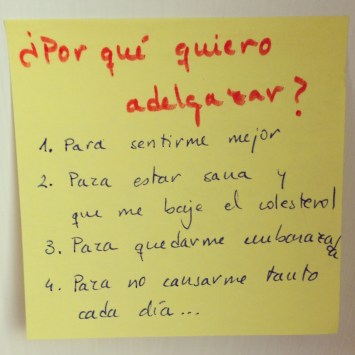 ¿Por qué quiero
adelgazar?
1. Para sentirme mejor
2. Para estar sana y
que me baje el colesterol
3. Para quedarme embarazada
4. Para no cansarme tanto
cada día...